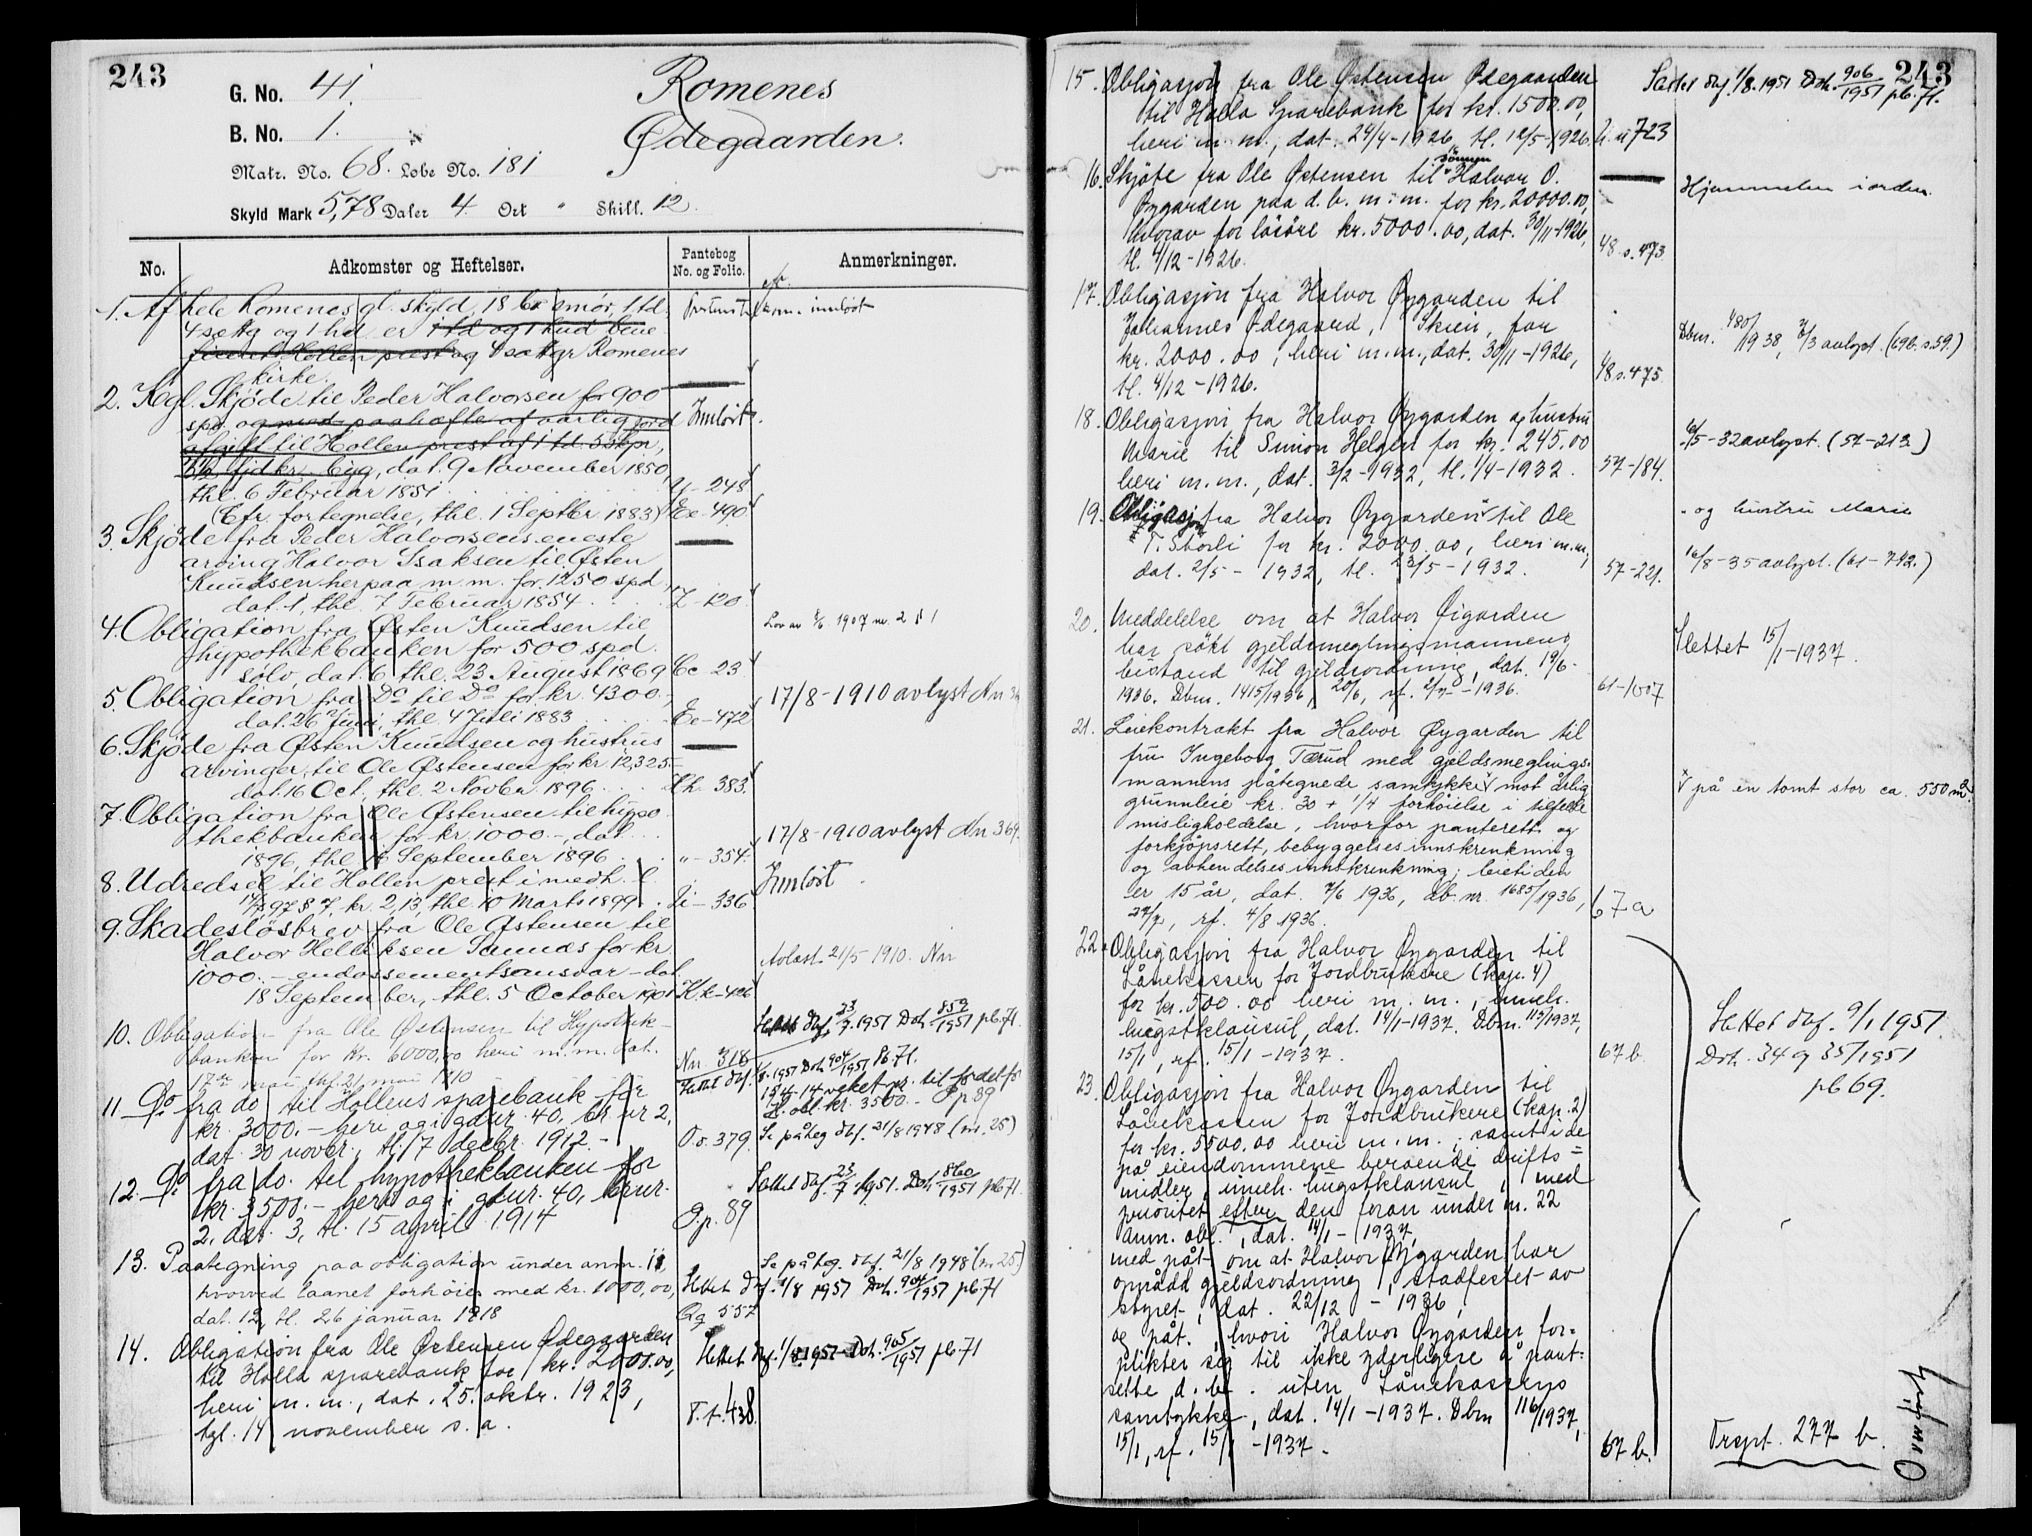 243
G. No. 41.
B. No. 1.
Matr. No. 68. Lobe No. 181
Skyld Mark 5,78 Daler 4. Ort " Skill. 12.
Romenes
Ødegaarden.
No.
Adkomster og Heftelser.
Pantebog No. og Folio.
Anmerkninger.
1. Af hele Romenes gl. skyld, 18 bx smör, 1 td.
4 sættg og 1 hd er 1 td og 1 hud bene
ficeret Hollen prest og 4 sættgr Romenes
kirke.
innløst
2. Kgl. Skjöde til Peder Halvorsen for 900
spd. og med paahefte af aarlig jord
afgift til Hollen prest af 1 td. 5 skpr,
2½ fjdkr. byg, dat. 9 November 1850,
thl. 6 Februar 1851
Y- 248
Innløst.
(Cfr. fortegnelse, thl. 1 Septbr. 1883) Ee-490
3. Skjöde fra Peder Halvorsens eneste
arving Halvor Isaksen til Østen
Knudsen herpaa m. m. for 1250 spd
dat. 1, thl. 7 Februar 1854
Z-120
4. Obligation fra Østen Knudsen til
hypothekbanken for 500 spd.
sölv, dat. 6, thl. 23 August 1869
Cc 23
Lov av 8/6 1907 nr. 2 § 1
5. Obligation fra Do til Do for kr. 4300.
dat. 26 Juni, thl. 4 Juli 1883
Ee-472
17/8-1910 avlyst Nn
6. Skjöde fra Østen Knudsen og hustrus
arvinger, til Ole Østensen for kr. 12,325.-
dat. 16 Oct., thl. 2 Novbr 1896
Hh. 383.
7. Obligation fra Ole Østensen til hypo
thekbanken for kr 1000.-, dat
1896, thl. 16 September 1896
"-354.
17/8-1910 avlyst Nn 369.
8. Udredsel til Hollen prest i medh. l.
17/7 97 § 7, kr. 2,13, thl. 10 Marts 1899
Ii-336
Innløst
9. Skadeslösbrev fra Ole Østensen til
Halvor Helliksen Namnæs for kr
1000.- endossementsansvar - dat.
18 September, thl. 5 October 1901
Kk-426
Avlæst 21/5 1910. Nn
10. Obligation fra Ole Østensen til Hypothek-
banken for kr. 6000,00 heri m. m. dat.
17de mai thl. 21 mai 1910
Nn 318
Slettet dbf. 23/7 1951 Dok 859/1951 pb. 71.
11. Do fra do til Hollens sparebank for
kr. 3000.- heri og i gdnr. 40, br. nr 2,
dat. 30 novbr., tl. 17 decbr. 1912.-
Oo. 379.
Slettet dbf. 1/8. 1951 Dok 904/1951 Pb. 71.
1914-14 veket pr. til fordel for
obl. kr. 3500.- Pp 89
Se påteg. dbf. 21/8 1948 (nr. 25)
12. Do fra do. til hypothekbanken for
kr. 3500.- heri og i gdnr. 40, brnr.
2, dat. 3, tl. 15 april 1914
P.p. 89
Slettet dbf. 23/7 1951. Dok 860/1951 pb 71.
13. Paategning paa obligation under anm. 11,
hvorved laanet forhöies med kr. 1000,00,
dat. 12, tl. 26 januar 1918
Qq 557
Se påteg. dbf. 21/8 1948 (nr. 25)
Slettet dbf. 1/8 1951 Dok. 904/1951 pb. 71
14. Obligation fra Ole Østensen Ødegaarden
til Holla sparebank for kr. 2000.00,
heri m. m., dat. 25. oktr. 1923,
tgl. 14 november s. a.
T.t. 438.
Slettet dbf. 1/8. 1951 Dok. 905/1951 pb. 71
243
15. Obligasjon fra Ole Østensen Ødegaarden
til Holla Sparebank for kr. 1500.00,
heri m. m., dat. 24/4-1926, tl. 12/5-1926.
U.u 723
Slettet dbf. 1/8. 1951 Dok. 906/1951 pb. 71.
16. Skjöte fra Ole Østensen til sönnen Halvor O.
Øygarden paa d. b. m. m. for kr. 20000.00,
hvorav for lösöre kr. 5000.00, dat. 30/11-1926,
tl. 4/12-1926.
48 s. 473
Hjemmelen i orden.
17. Obligasjon fra Halvor Øygarden til
Johannes Ødegaard, Skien, for
kr. 2000.00, heri m.m., dat. 30/11-1926,
tl. 4/12-1926.
48 s. 475
Dbnr. 480/1938, 3/3 avlyst. (69b. s. 59.)
18. Obligasjon fra Halvor Øygarden og hustru
Marie til Simon Helgen for kr. 245.00
heri m. m., dat. 3/2-1932, tl. 1/4-1932.
57-184.
6/5-32 avlyst. (57-213)
19. Obligasjon fra Halvor Øygarden ˅ til Ole
T. Storli for kr. 2000.00, heri m.m,
dat. 2/5-1932, tl. 23/5-1932.
57-221.
˅ og hustru Marie
16/8-35 avlyst. (61-742.)
20. Meddelelse om at Halvor Øigarden
har søkt gjeldsmeglingsmannens
bistand til gjeldsordning, dat. 19/6-
1936. Dbnr. 1415/1936, 20/6, rf. 2/7-1936.
61-1007
Slettet 15/1-1937.
21. Leiekontrakt fra Halvor Øygarden til
fru Ingeborg Tærud med gjeldsmeglings-
mannens påtegnede samtykke ˅ mot årlig
grunnleie kr. 30 + 1/4 forhöielse i tilfelle
misligholdelse, hvorfor panterett og
forkjöpsrett, bebyggelsesinnskrenkning
og avhendelsesinnskrenkning; leietiden
er 15 år, dat. 7/6 1936, db. nr. 1685/1936,
27/7, rf. 4/8 1936.
67 a
˅ på en tomt stor ca. 550 m2.
22. Obligasjon fra Halvor Øygarden til
Lånekassen for Jordbrukere (kap. 4)
for kr. 500.00 heri m. m., inneh.
hugstklausul, dat. 14/1-1937. Dbnr. 115/1937,
15/1, rf. 15/1-1937.
67 b.
Slettet dbf. 9/1 1951.
Dok. 34 og 35/1951
pb 69.
23. Obligasjon fra Halvor Øygarden til
Lånekassen for Jordbrukere (kap. 2)
for kr. 5500.00 heri m. m., samt i de
på eiendommene beroende drifts=
midler, inneh. hugstklausul, med
prioritet efter den foran under nr. 22
anm. obl., dat. 14/1-1937,
med påt. om at Halvor Øygarden har
oprådd gjeldsordning, stadfestet av
styret, dat. 22/12-1936,
og påt., hvori Halvor Øygarden for=
plikter sig til ikke yderligere å pant=
sette d. b. uten Lånekassens
samtykke, dat. 14/1-1937. Dbnr 116/1937,
15/1, rf. 15/1-1937.
67 b.
Trspt. 277 b.